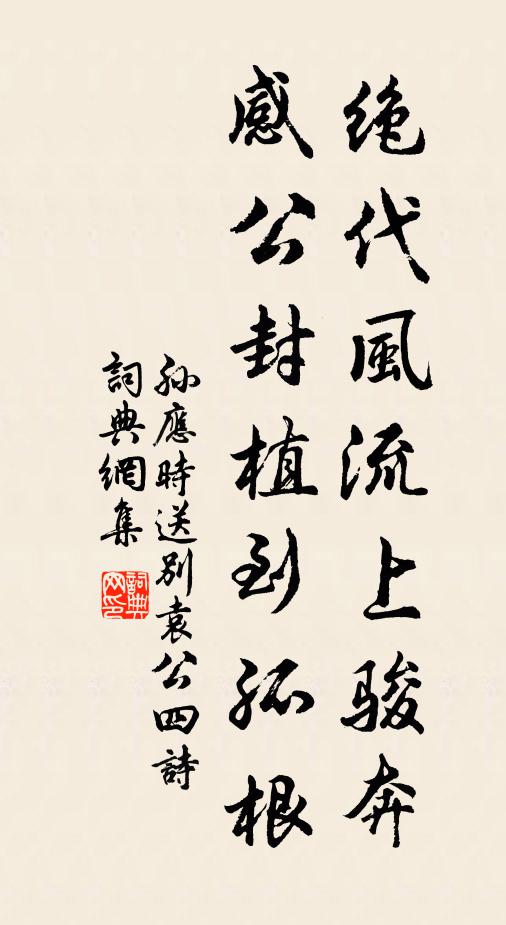 绝代風流上骏奔
感公封植到孤根
孙應時送别袁公四詩
詞典網集
詞典网印